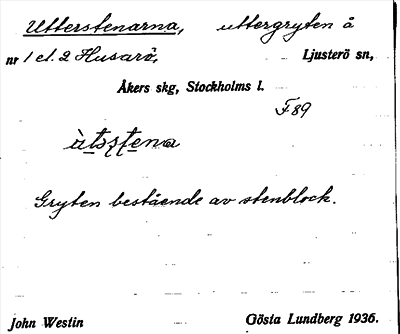 Utterstenarna, uttergryten å
nr 1 el. 2 Husarö, Ljusterö sn,
Åkers skg, Stockholms l.
F 89
Gryten bestående av stenblock.
John Westin Gösta Lundberg 1936.